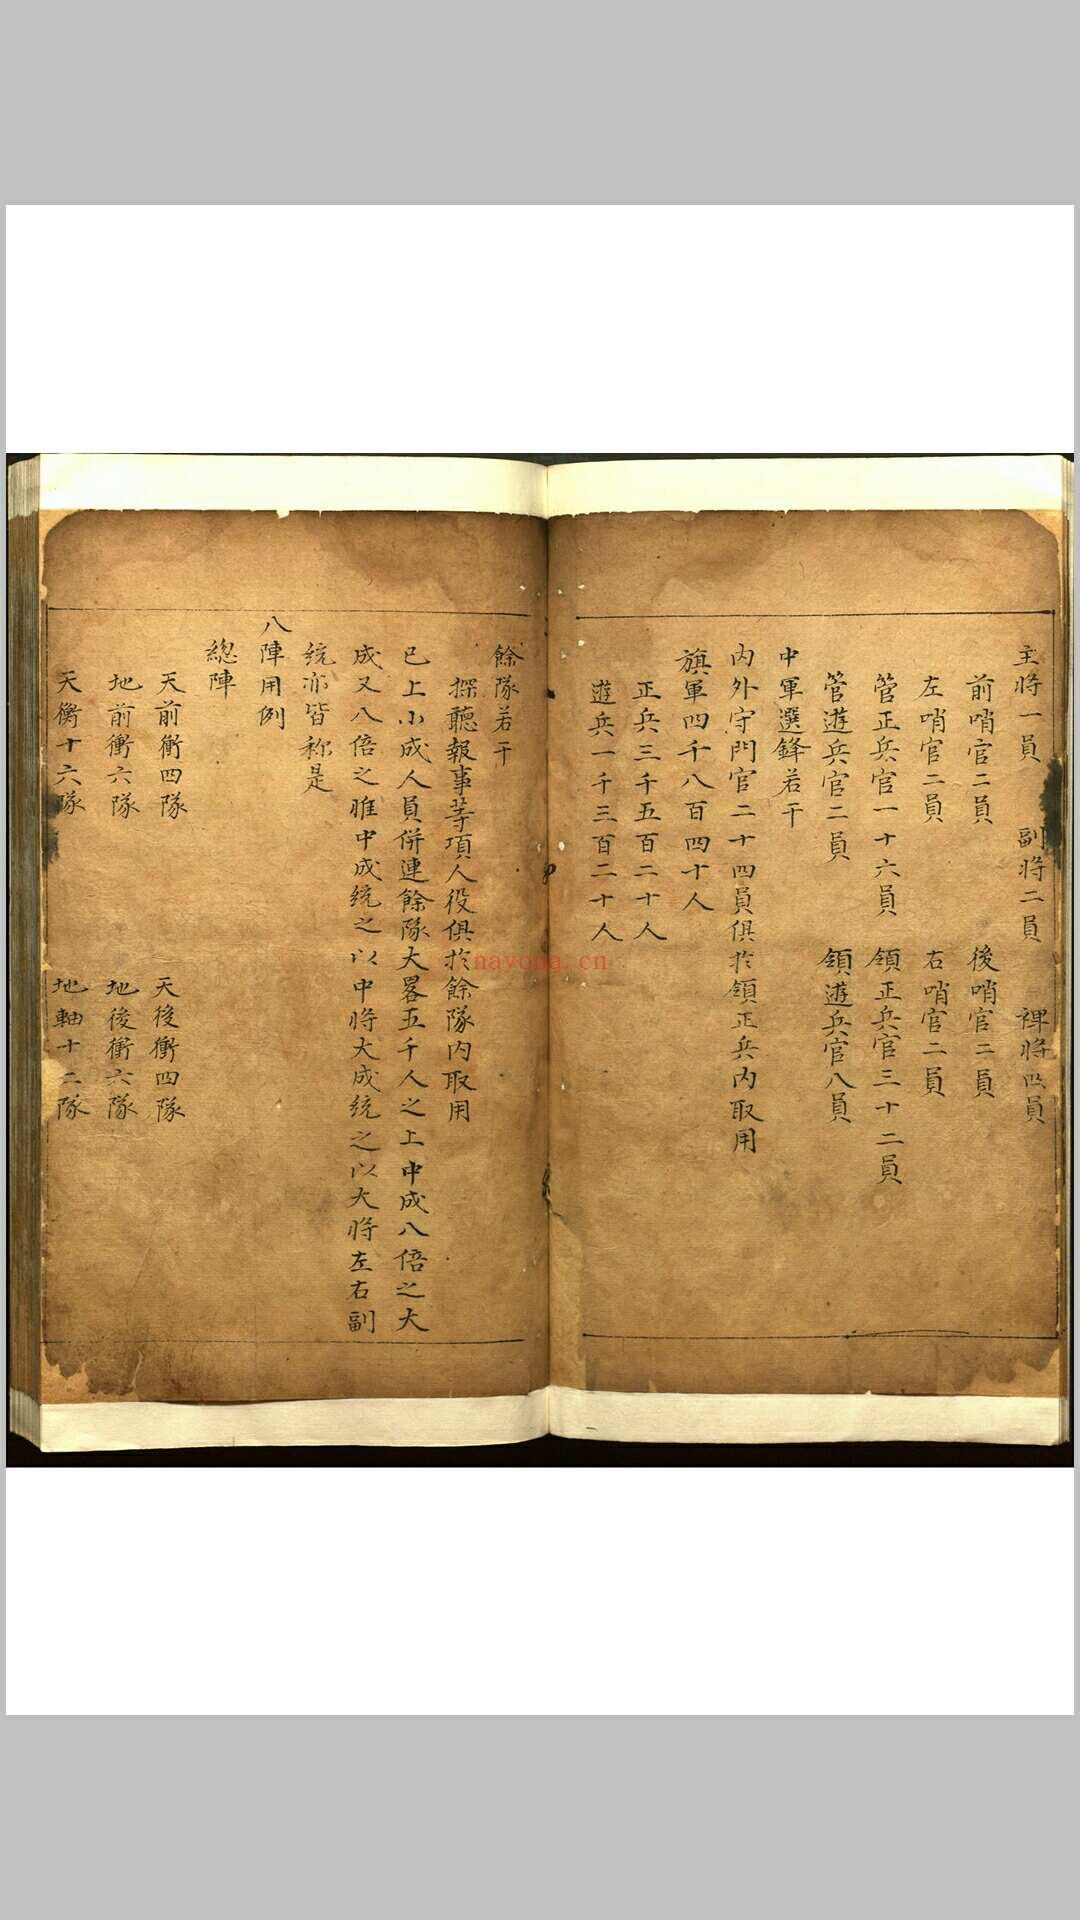 主將一員　副將二員　裨將四員
前哨官二員　後哨官二員
左哨官二員　右哨官二員
管正兵官一十六員　領正兵官三十二員
管遊兵官二員　領遊兵官八員
中軍選鋒若干
內外守門官二十四員俱於領正兵內取用
旗軍四千八百四十人
正兵三千五百二十人
遊兵一千三百二十人
餘隊若干
探聽報事等項人役俱於餘隊內取用
已上小成人員併連餘隊大畧五千人之上中成八倍之大
成又八倍之惟中成統之以中將大成統之以大將左右副
統亦皆称是
八陣用例
總陣
天前衝四隊　天後衝四隊
地前衝六隊　地後衝六隊
天衡十六隊　地軸十二隊
nayona.cn